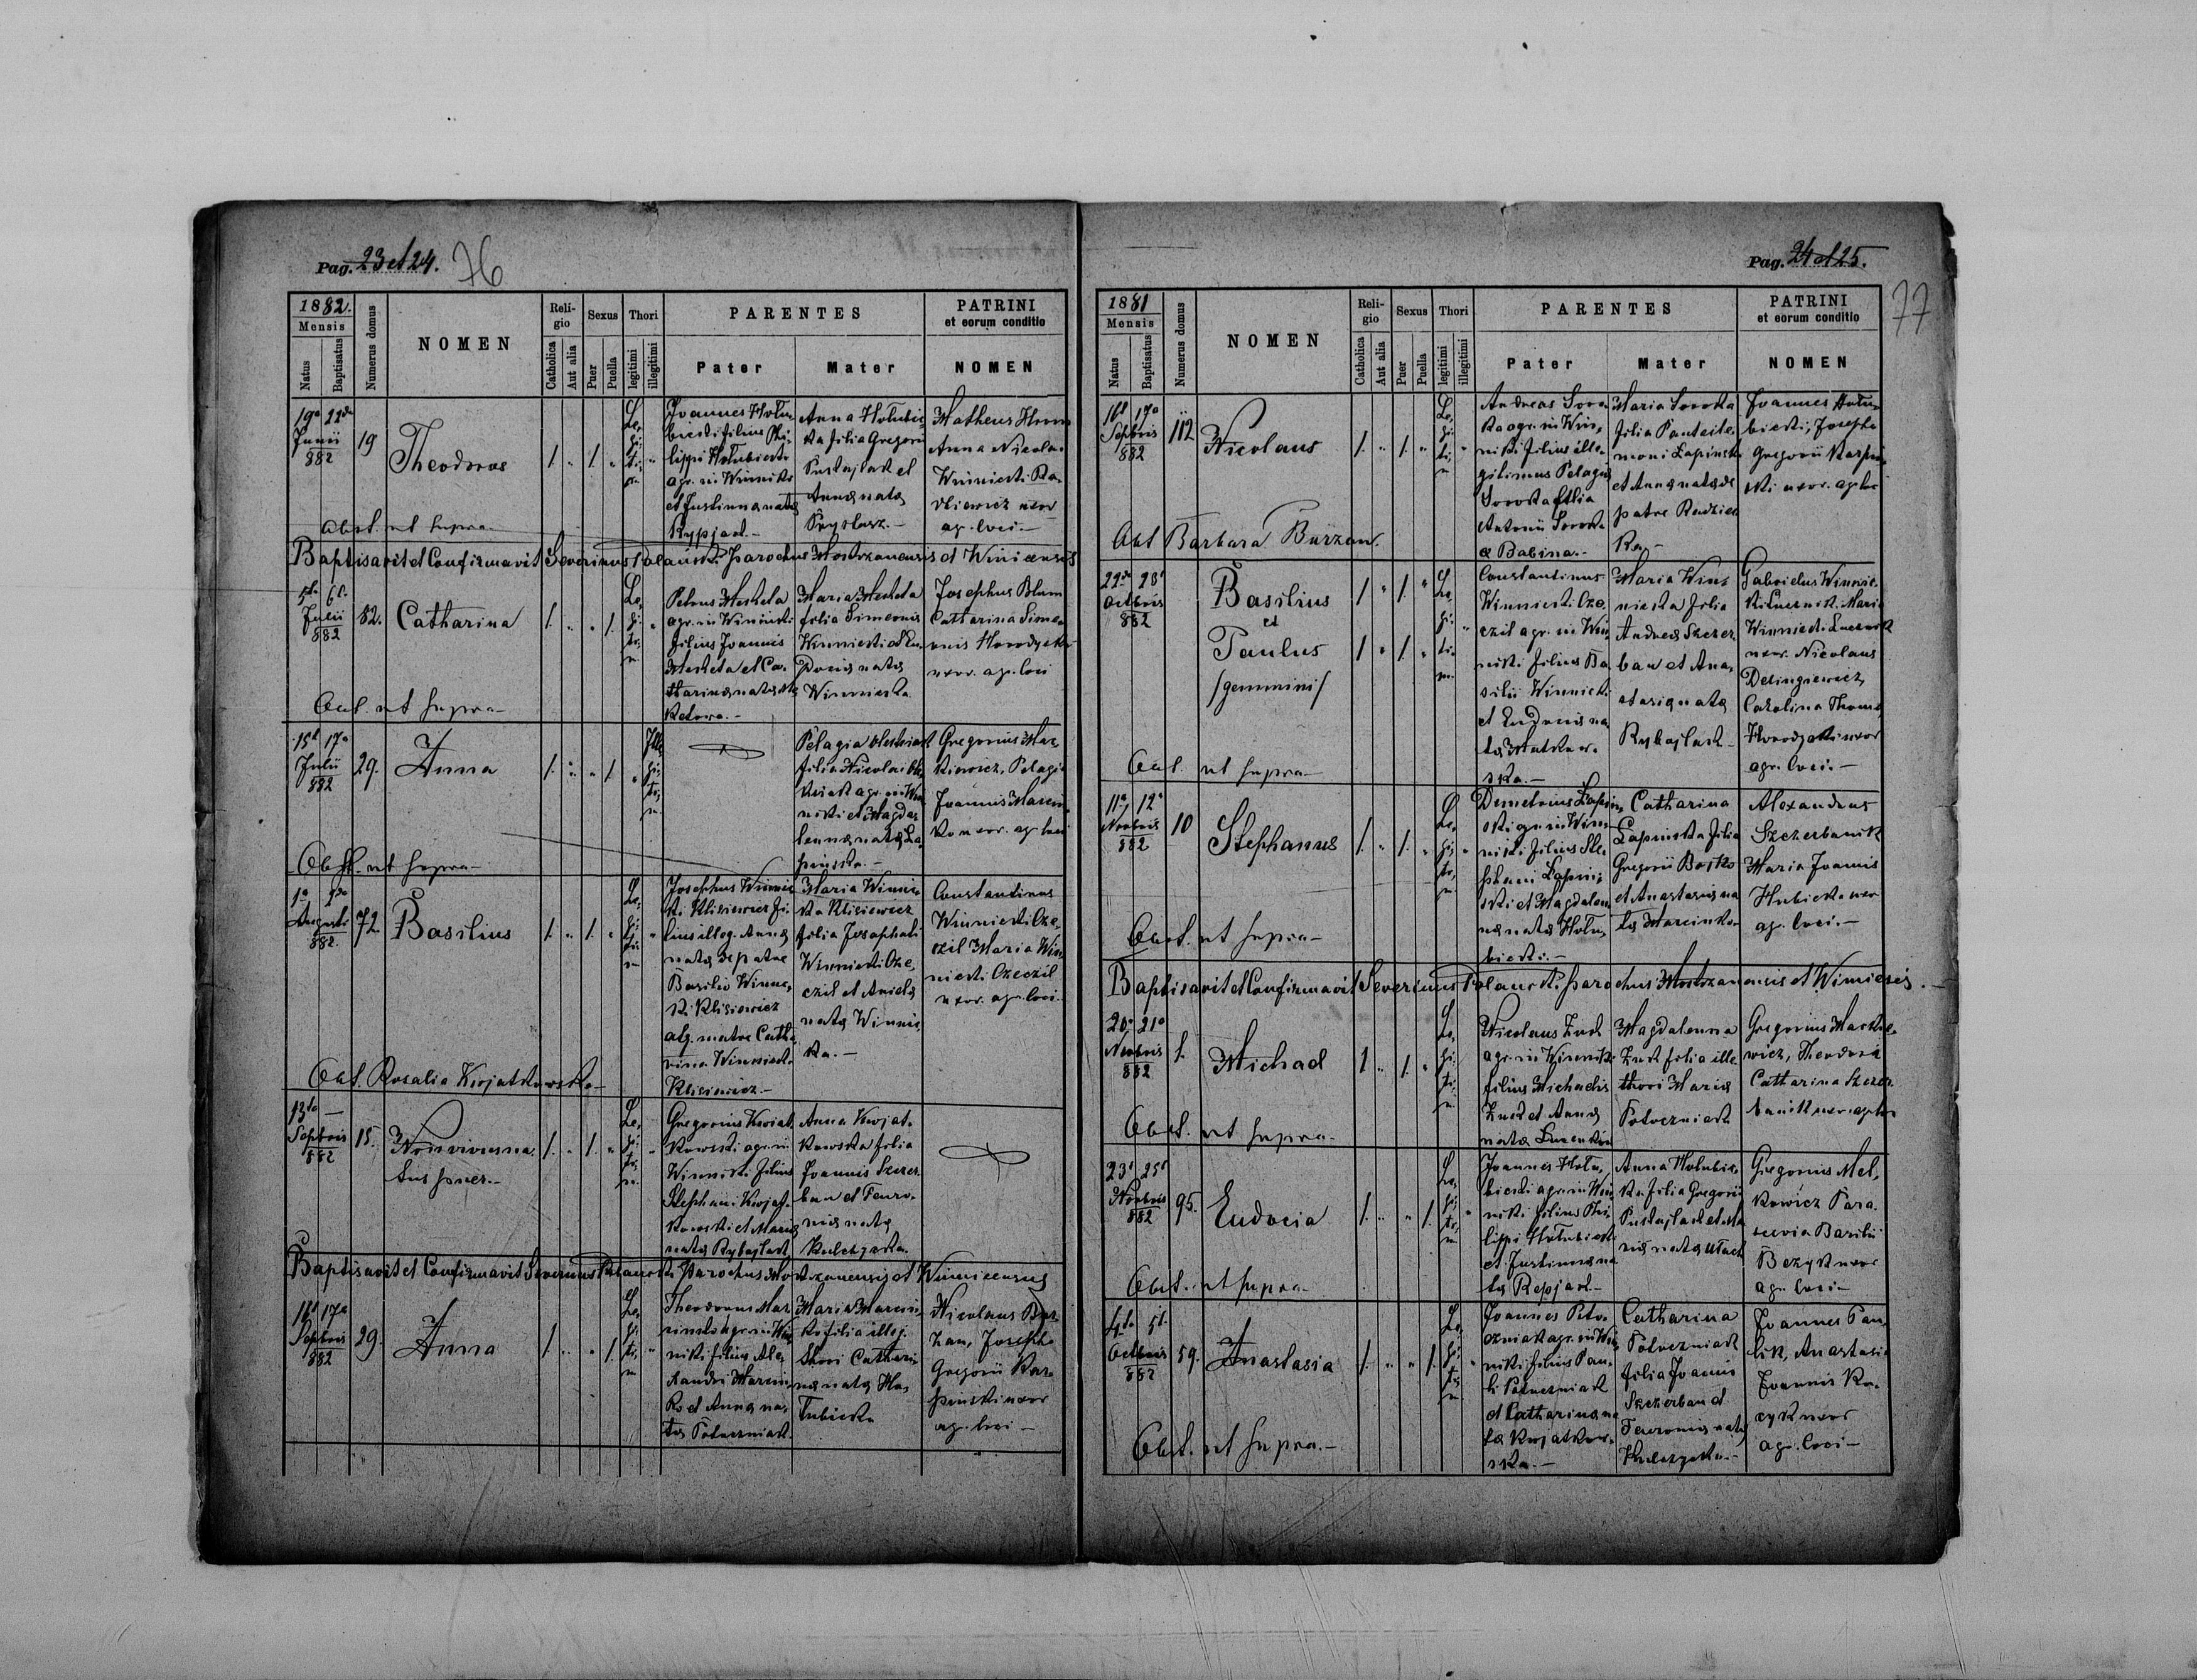 Pag. 23 et 24.
76
1882.
Mensis
Natus
Baptisatus
Numerus domus
NOMEN
Reli-
gio
Catholica
Aut alia
Sexus
Puer
Puella
Thori
legitimi
illegitimi
PARENTES
Pater
Mater
PATRINI
et eorum conditio
NOMEN
19a 22da
Junii
882
19
Theodorus
Le,
gi,
ti,
m.
Joannes Hołu,
bicki filius Phi,
lippi Hołubicki
agr. in Winniki
et Justinna nata
Rypjach.-
Anna Hołubic
ka filia Gregorii
et
Anna nata
Matheus
Anna Nicolai
Winnicki
uxor
ag. loci.-
Obst. ut supra-
Baptisavit et Confirmavit Severinus Polański parochus Mostrzanensis et Winicensis
5ta 6ta
Julii
882
82.
Catharina
Le,
gi,
ti,
m
Petrus
agr. in Winniki
filius Joannis
et Ca,
tharina nata
Maria
filia Simeonis
Winnicki et Eu,
docia nata
Winnicka
Josephus
Catharina Simeo
nis Horodyski
uxor. agr. loci
Obst. ut supra-
15ta 17a
Julii
882
29.
Anna
Ille,
gi,
ti,
m.
Pelagia
filia Nicolai
agr. in Win
niki et Magda,
lenna nata Ła,
pinska.-
Gregorius Mar,
kiewicz, Pelagia
Joannis Marcin,
ko uxor. ag. loci
Obst. ut supra-
1a 2da
Augusti
882.
72.
Basilius
Le,
gi,
ti,
m
Josephus Winnic
ki Klisiewicz fi,
lius illeg. Anna
nata de patre
Basilio Winnic,
ki Klisiewicz
atq. matre Catha
rina Winnicka
Klisiewicz.-
Maria Winnic
ka Klisiewicz
filia Josaphati
Winnicki Cze,
czil et Aniela
nata Winnic,
ka.-
Constantinus
Winnicki Cze,
czil Maria Win
nicki Czeczil
uxor. agr. loci.
Obst. Rosalia Kwjatkowska-
13tia -
Septbris
882
15.
Nonvivusna,
tus puer.-
Le,
gi,
ti,
m.
Gregorius Kwiat
kowski agr. in
Winniki filius
Stephani Kwjat,
kowski et Maria
nata Rybajlach
Anna Kwjat,
kowska filia
Joannis Szczer
ban et Fenro,
nia nata
Kulczycka.
Baptisavit et Confirmavit Severinus Polański Parochus Mostrzanensis et Winnicensis
16ta 17a
Septbris
882
29.
Anna
Le,
gi,
ti,
m
Theodorus Mar
cinko agr. in Win
niki filius Ale,
xandri Marcin,
ko et Anna na,
ta Potoczniak.
Maria Marcin,
ko filia illeg.
thori Cathari
na nata Ho,
łubicka
Nicolaus Bur
zan, Josepha
Gregorii Kar,
pinski uxor
ag. loci-
Pag. 24 et 25.
77
1881
Mensis
Natus
Baptisatus
Numerus domus
NOMEN
Reli-
gio
Catholica
Aut alia
Sexus
Puer
Puella
Thori
legitimi
illegitimi
PARENTES
Pater
Mater
PATRINI
et eorum conditio
NOMEN
16ta 17a
Septbris
882
112
Nicolaus
Le,
gi,
ti,
m
Andreas Soro,
ka agr. in Win,
niki filius ille,
gitimus Pelagia
Soroka filia
Antonii Soroka
a Babina.-
Maria Soroka
filia Panteile,
moni Łapinski
et Anna nata de
patre
Joannes Hołu,
bicki, Josepha
Gregorii Karpin,
ski uxor. ag. loci
Obst Barbara Burzan.
22da 23tia
Octobris
882
Basilius
et
Paulus
/gemmini/
Le,
gi,
ti,
m.
Constantinus
Winnicki Cze,
czil agr. in Win
niki filius Ba
silii Winnicki
et Eudocia na
ta
ska.-
Maria Win,
nicka filia
Andrea Szczer
ban et Ana,
stasia nata
Rybajlach-
Gabrielus Winnic,
ki Maria
Winnicki
uxor. Nicolaus
Carolina Thoma,
Horodyski uxor
agr. loci.-
Obst. ut supra-
11a 12a
Novbris
882
10
Stephanus
Le,
gi,
ti,
m
Demetrius Łapin,
ski agr. in Win
niki filius Ste,
phani Łapin,
ski et Magdalen
na nata Hołu,
bicki.-
Catharina
Łapinska filia
Gregorii Bojko
et Anastasia na
ta Marcinko-
Alexandrus
Szczerbanik
Maria Joannis
uxor
ag. loci.-
Obst. ut supra-
Baptisavit et Confirmavit Severinus Polański parochus Mostrzanensis et Winicesis.
20. 21a
Novbris
882
1.
Michael
Le,
gi,
ti,
m
Nicolaus
agr. in Winniki
filius Michaelis
et Anna
nata
Magdalenna
filia ille,
thori Maria
Potoczniak
Gregorius
Theodosia
Catharina Szczer,
banik uxor agr. loci
Obst. ut supra-
23tia 25ta
Novbris
882
95.
Eudocia
Le,
gi,
ti,
m
Joannes Hołu,
bicki agr. in Win
niki filius Phi,
lippi Hołubicki
et Justinna na
ta Repjach-
Anna Hołubic,
ka filia Gregorii
et
nata
Gregorius Mel,
kowicz Para,
scevia Basilii
uxor
ag. loci-
Obst. ut supra-
4ta 5ta
Octbris
882
59.
Anastasia
Le,
gi,
ti,
m
Joannes Poto,
czniak agr. in Win,
niki filius Pau,
li Potoczniak
et Catharina na
ta Kwjatkow,
ska.-
Catharina
Potoczniak
filia Joannis
Szczerban et
Fenronia nata
Kulczycka.-
Joannes Paw
lik, Anastasia
Joannis Ko,
zyk uxor
agr. loci-
Obst. ut supra.-